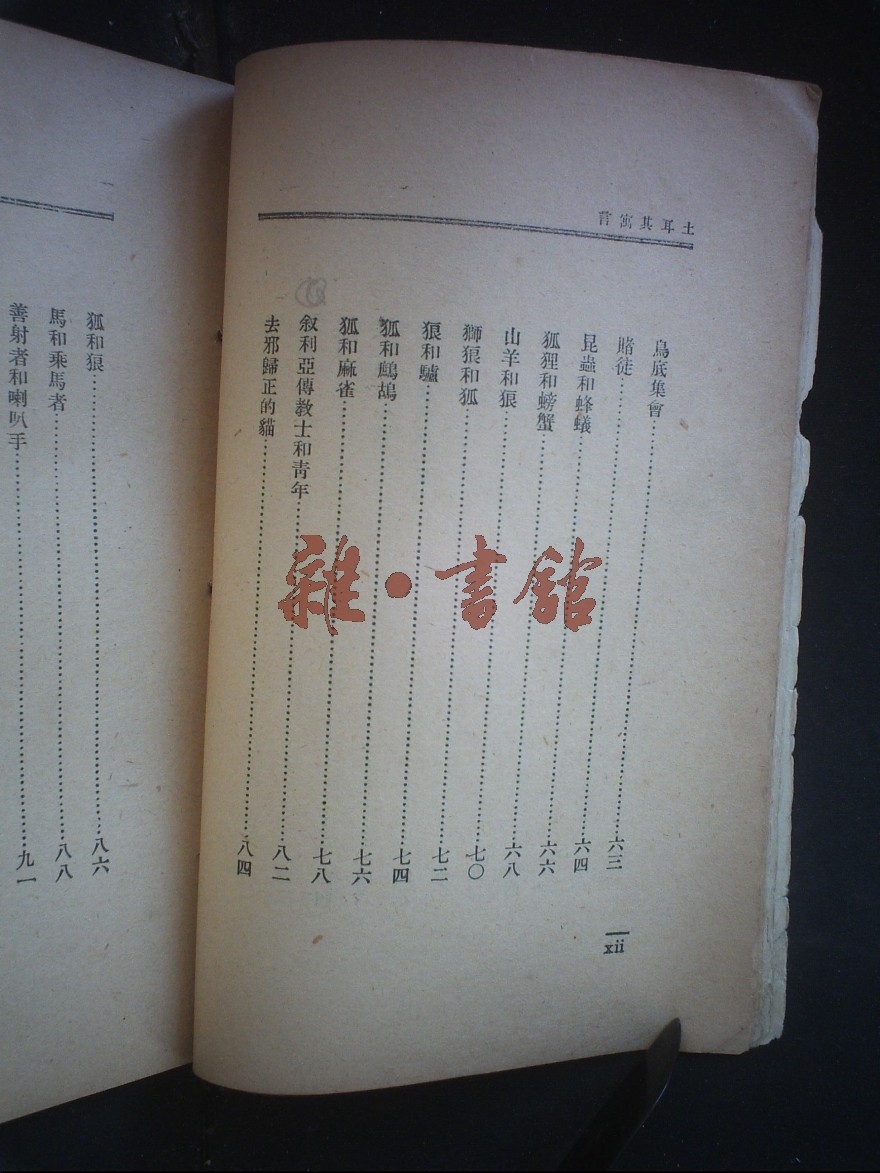 土耳其寓言
鳥底集會……六三
賭徒……六四
昆蟲和蜂蟻……六六
狐狸和螃蟹……六八
山羊和狼……七〇
獅狼和狐……七二
狼和驢……七四
狐和鷓鴣……七六
狐和麻雀……七八
叙利亞傳教士和青年……八二
去邪歸正的貓……八四
xii
狐和狼……八六
馬和乘馬者……八八
善射者和喇叭手……九一
雜·書館